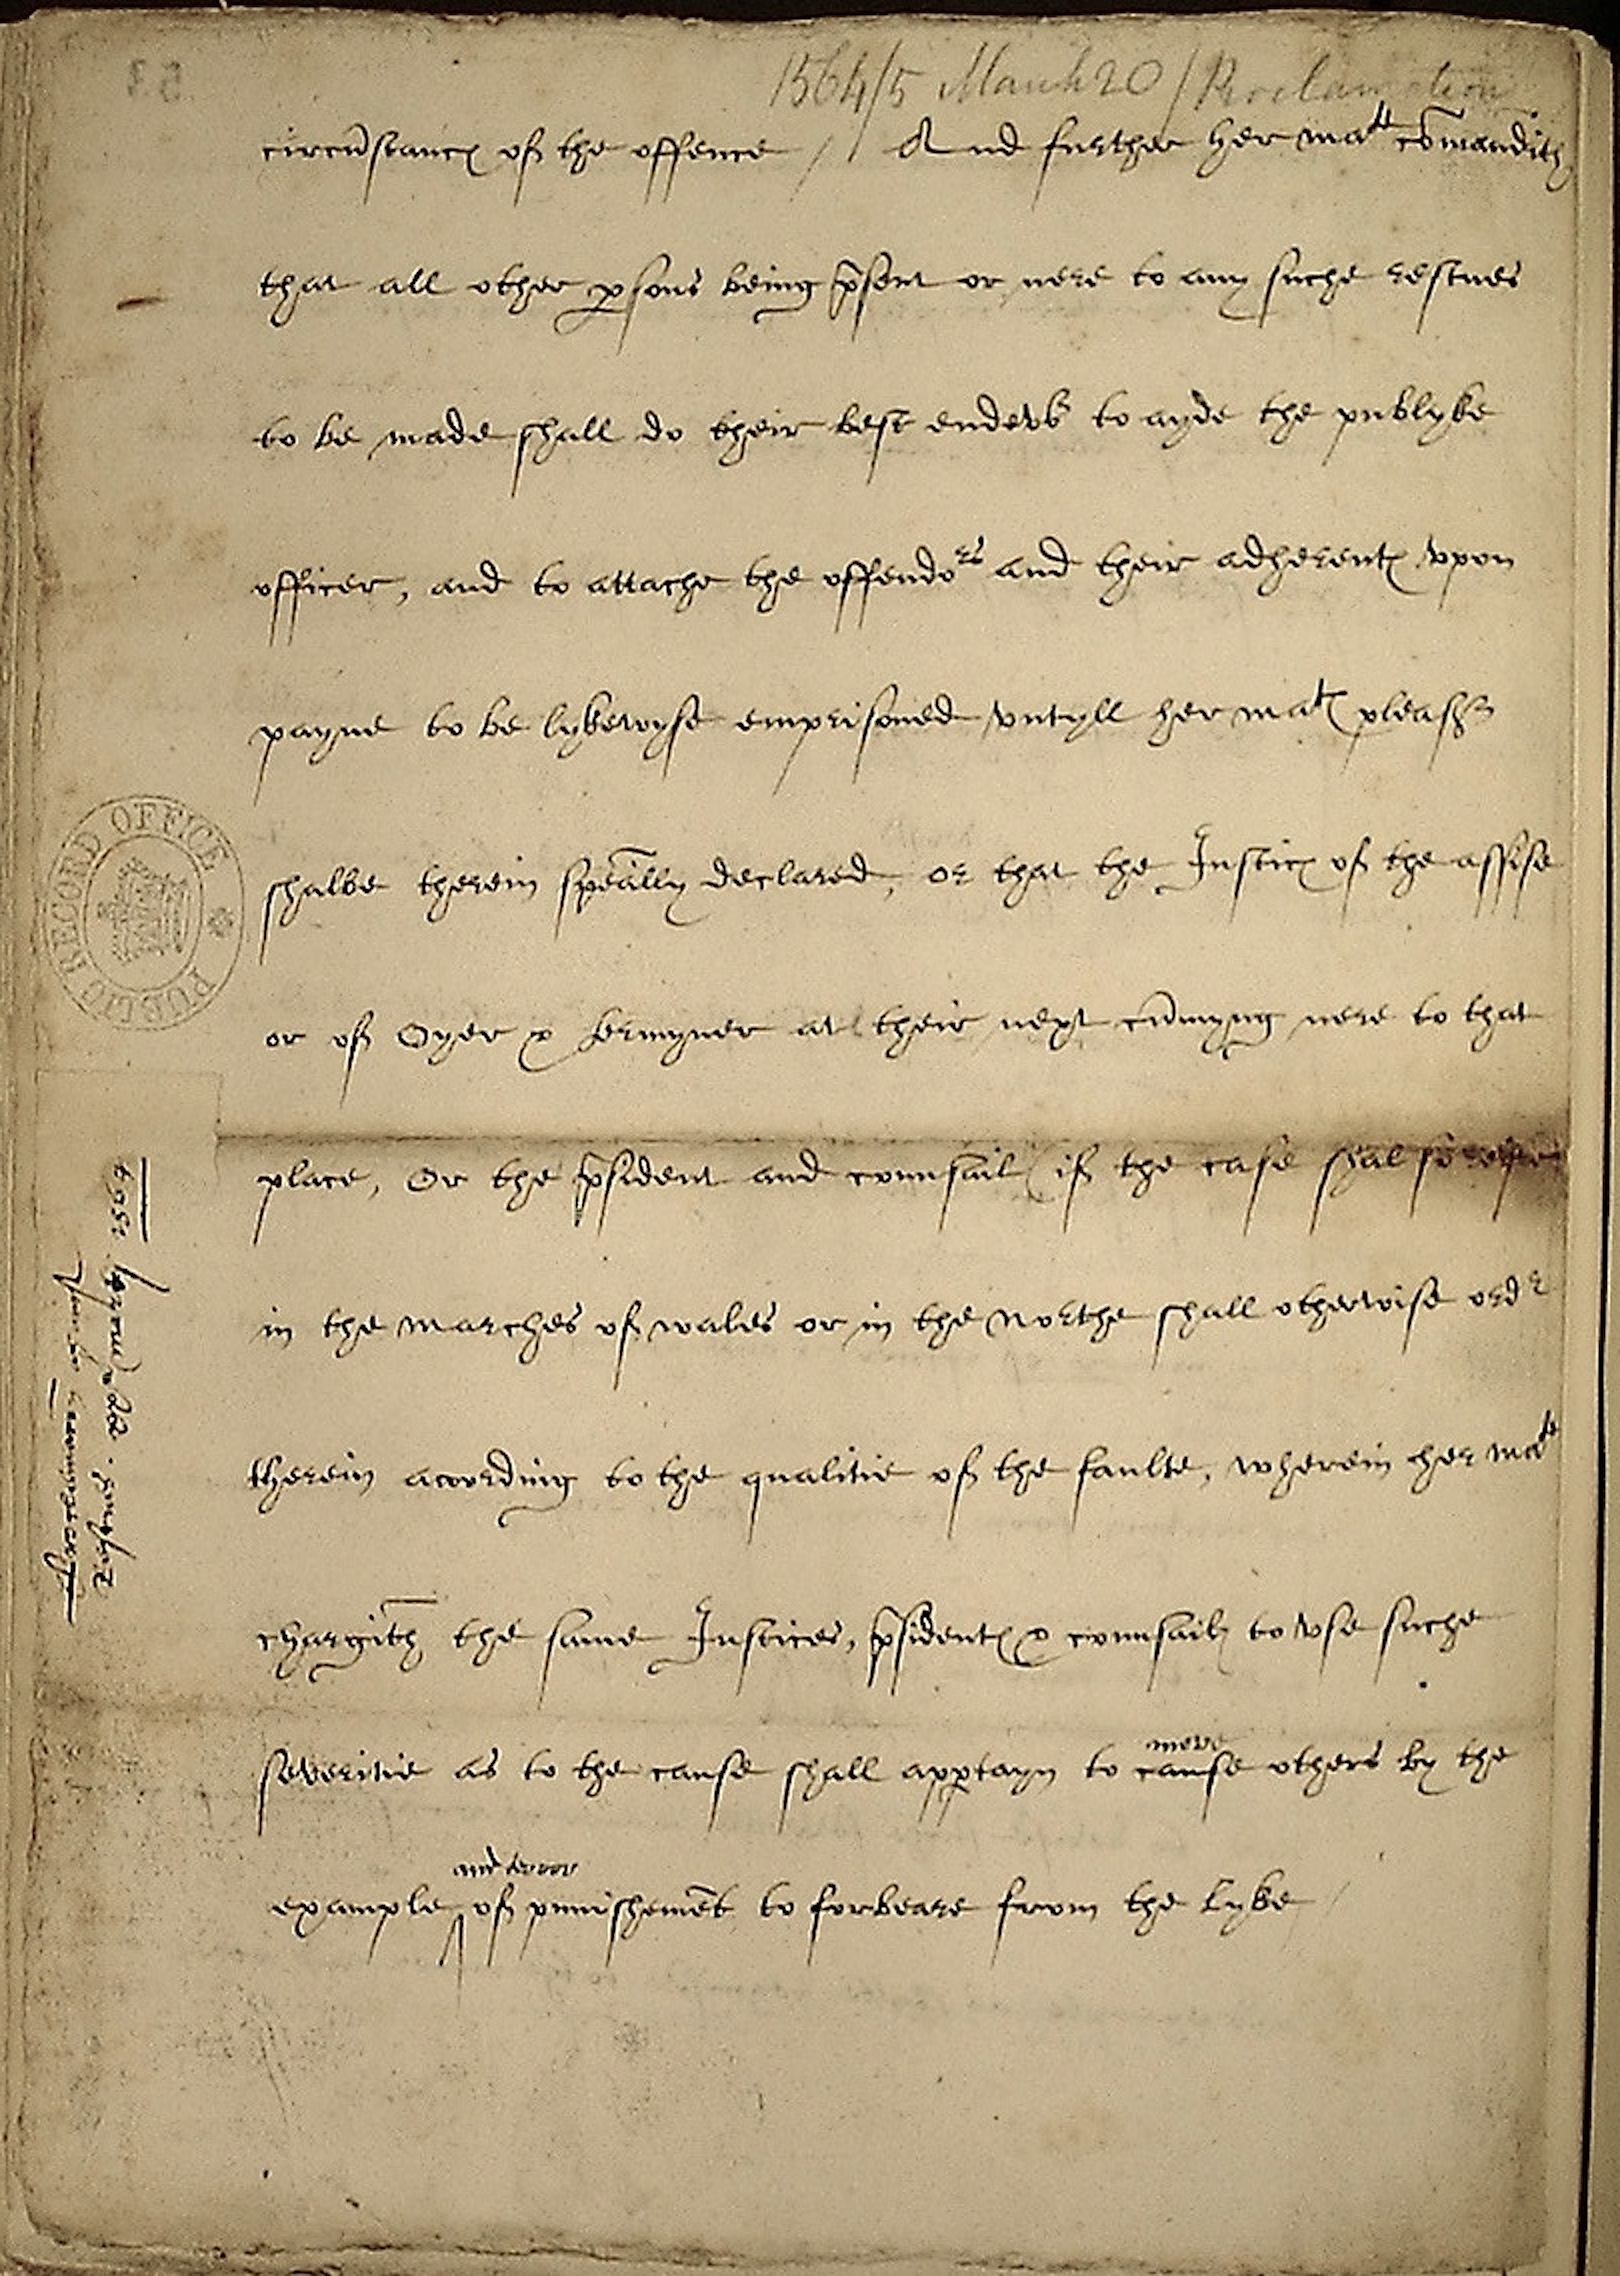 1564/5 March 20 / Proclamation
circũstancꝭ off the offence / And further her maᵗⁱᵉ cõmandith
that all other ꝑsons being p̃sent or nere to any suche rescues
to be made shall do their best endevoʳ to ayde the publyke
officer, and to attache the offendoʳˢ and their adherentꝭ vpon
payne to be lykewyse emprisoned vntyll her maᵗꝭ pleasʳ
shalbe therein spẽally declared, or that the Justicꝭ off the assise
or off Oyer & termyner at their next cũmyng nere to that
place, Or the p̃sident and counsail (iff the case shal so
in the marches off wales or in the northe shall otherwise ordʳ
therein acording to the qualitie off the faulte, wherein her maᵗⁱᵉ
chargith the same Justices, p̃sidentꝭ & counsailꝭ to vse suche
severitie as to the cause shall apꝑtayn to cause others by the
move
example off punishemẽt to forbeare from the lyke /
and terror
Proclamatiõ against
rescues. 20. martij. 1564
PUBLIC RECORD OFFICE
53